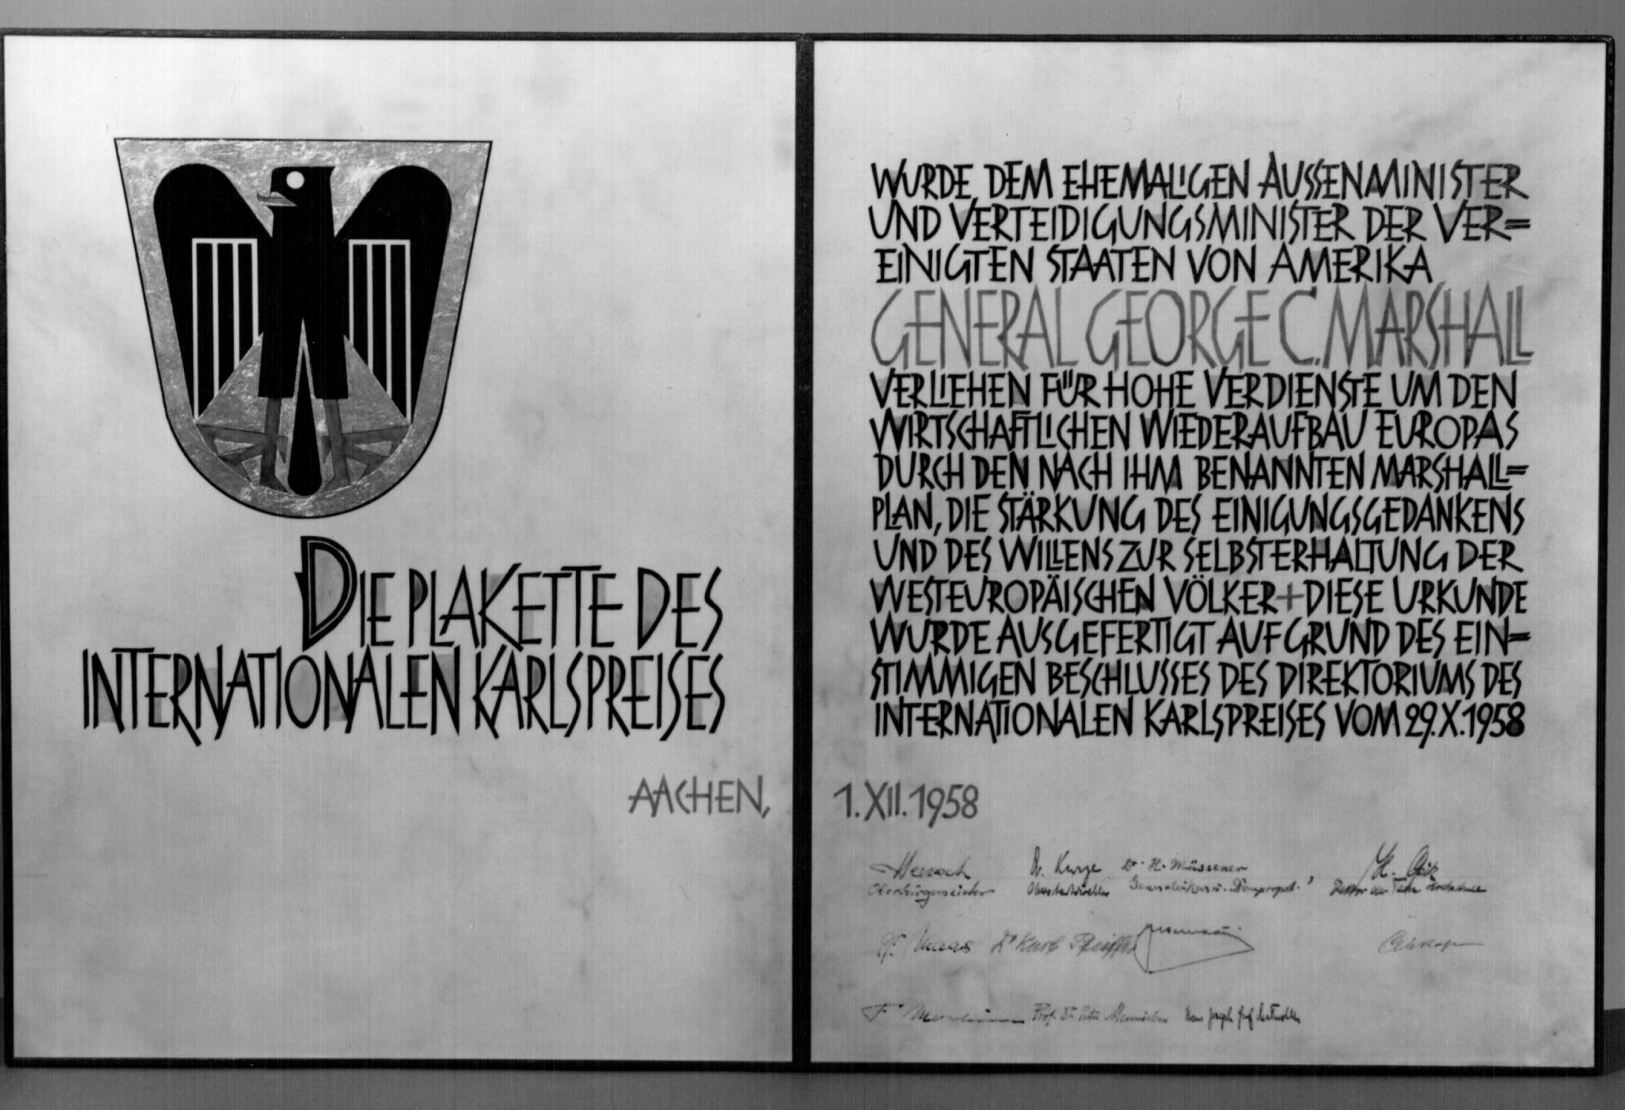 DIE PLAKETTE DES
INTERNATIONALEN KARLSPREISES
AACHEN,
WURDE DEM EHEMALIGEN AUSSENMINISTER
UND VERTEIDIGUNGSMINISTER DER VER=
EINIGTEN STAATEN VON AMERIKA
GENERAL GEORGE C. MARSHALL
VERLIEHEN FÜR HOHE VERDIENSTE UM DEN
WIRTSCHAFTLICHEN WIEDERAUFBAU EUROPAS
DURCH DEN NACH IHM BENANNTEN MARSHALL=
PLAN, DIE STÄRKUNG DES EINIGUNGSGEDANKENS
UND DES WILLENS ZUR SELBSTERHALTUNG DER
WESTEUROPÄISCHEN VÖLKER + DIESE URKUNDE
WURDE AUSGEFERTIGT AUFGRUND DES EIN=
STIMMIGEN BESCHLUSSES DES DIREKTORIUMS DES
INTERNATIONALEN KARLSPREISES VOM 29.X.1958
1.XII.1958
Dr. H. Müssener
Oberbürgermeister
Dr Kurt Pfeiffer
Prof. Dr